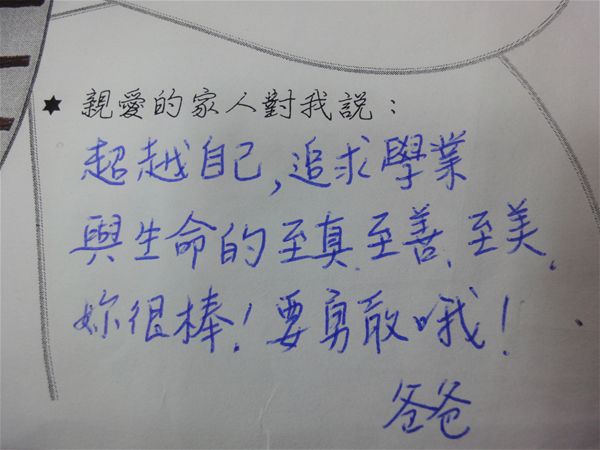 ★ 親愛的家人對我說：
超越自己,追求學業
與生命的至真、至善、至美、
妳很棒!要勇敢哦!
爸爸